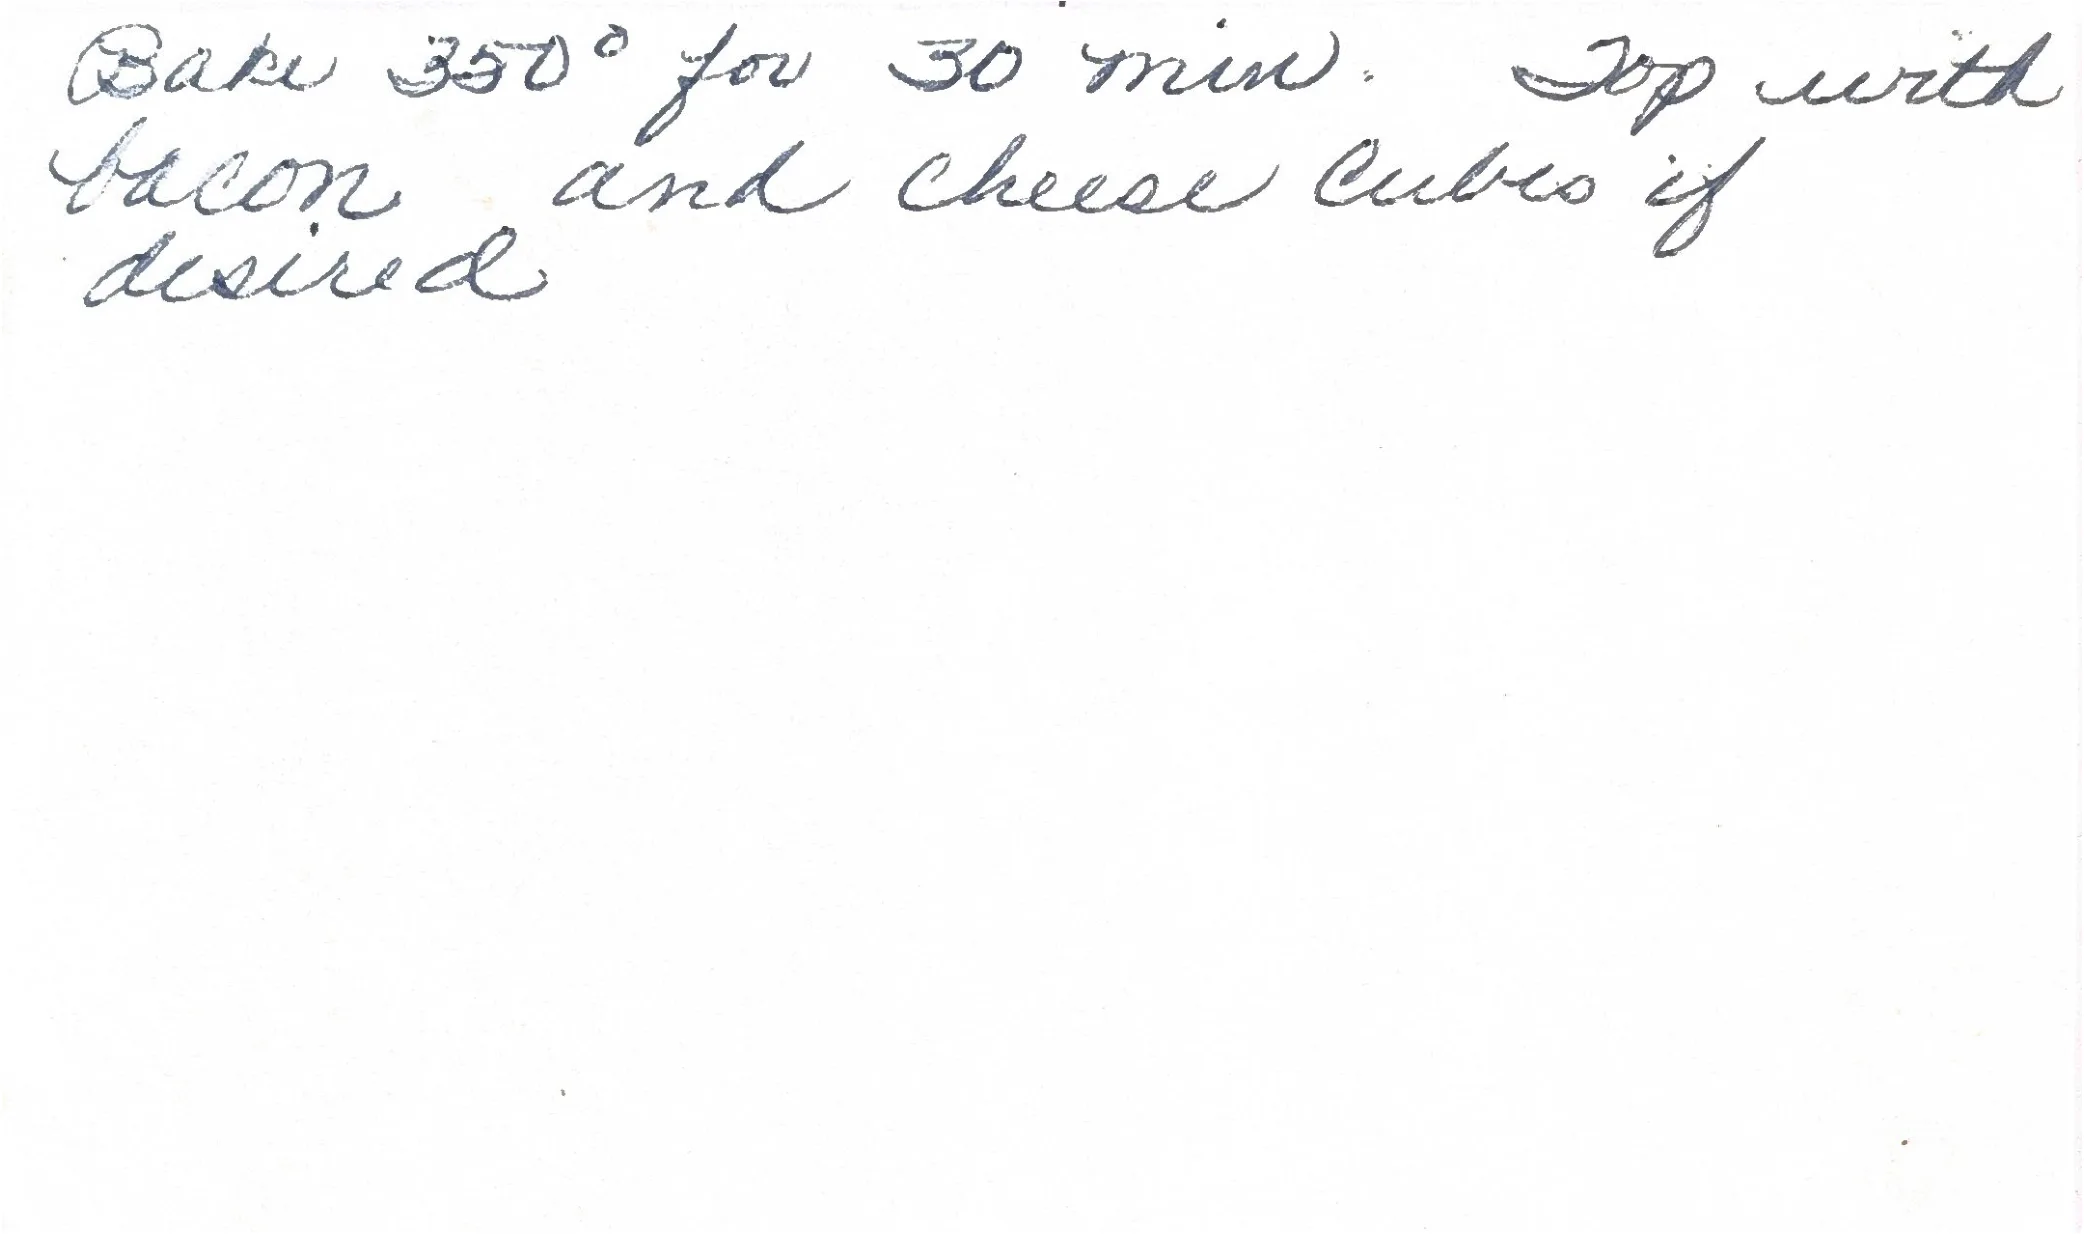 Bake 350° for 30 min. Top with
bacon and cheese cubes if
desired